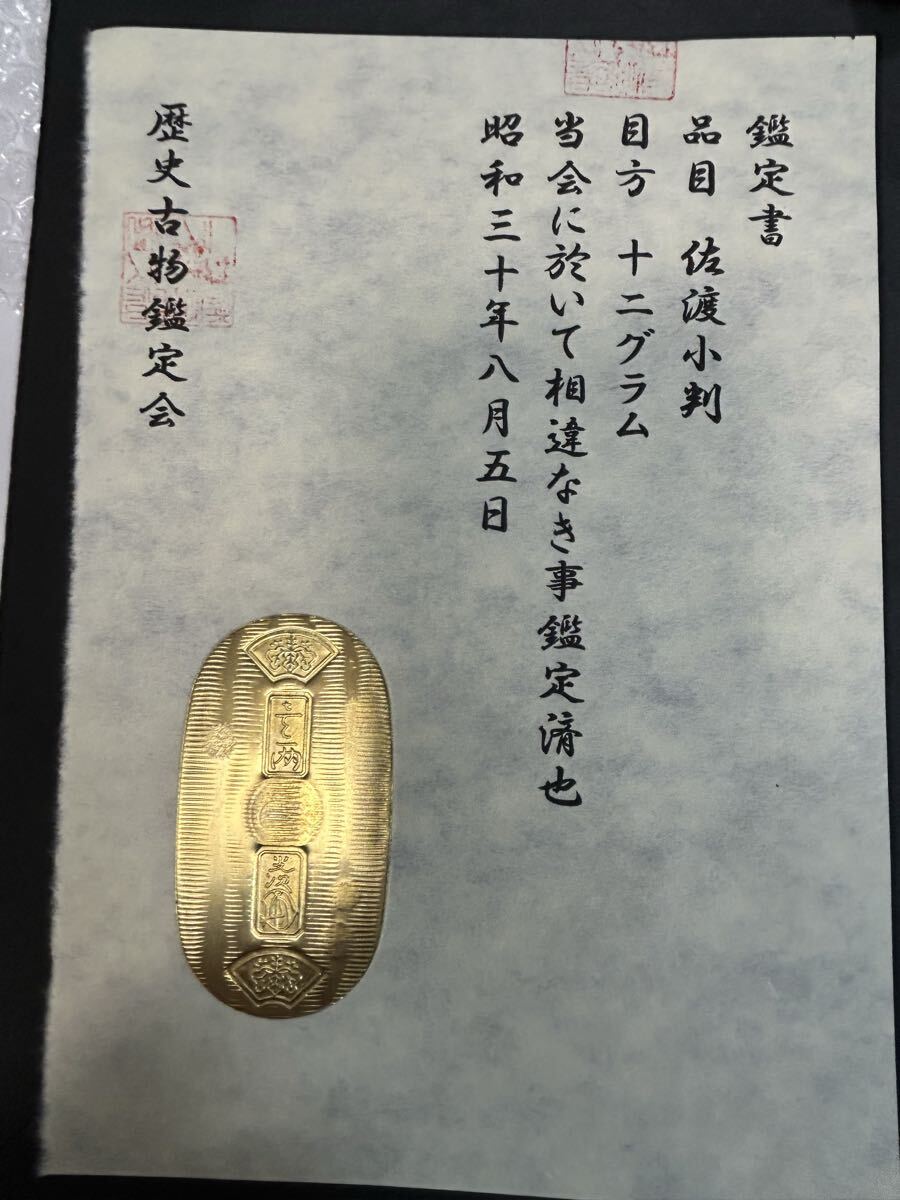 鑑定書
品目 佐渡小判
目方 十二グラム
当会に於いて相違なき事鑑定済也
昭和三十年八月五日
歴史古物鑑定会